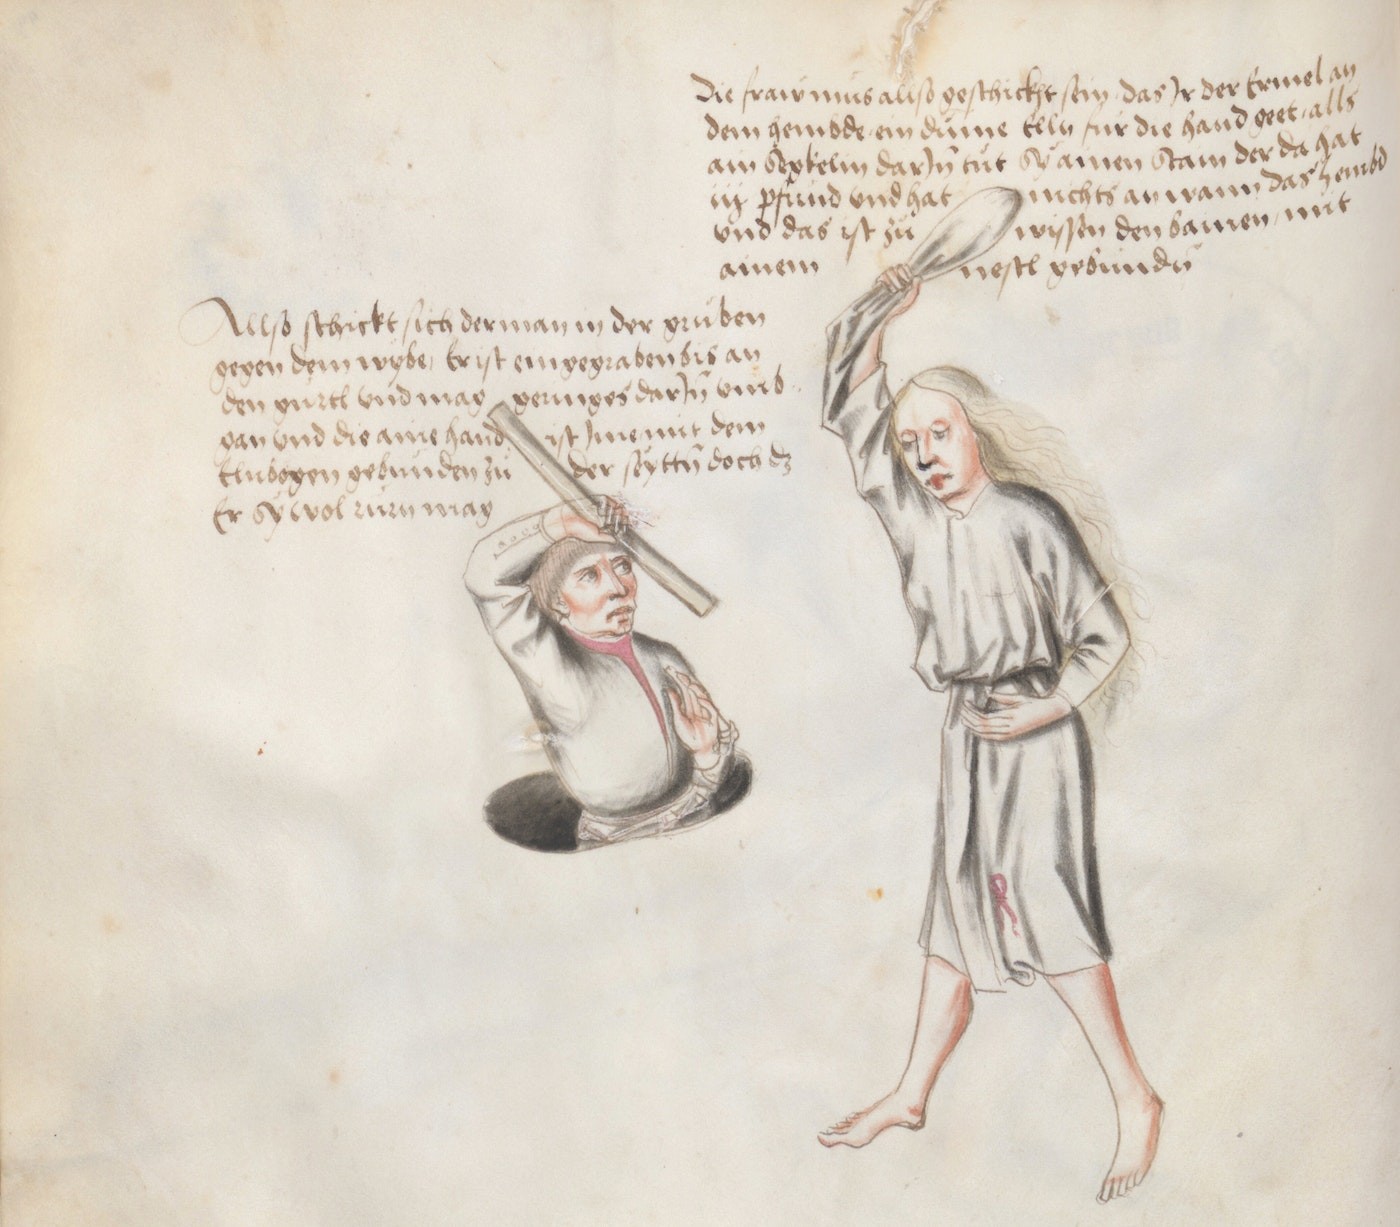 Die fraw mus allso geschickt sein das Ir der Ermel an
dem hembde ein dume Elln für die hand geet alls
ain Seckelin darJn tut Sy ainen Stain der da hat
iij pfund und hat nichts an wann das hembd
und das ist zu wissen den bainen mit
ainem nestl gebundn
Allso schickt sich der man in der gruben
gegen dem wybe Er ist eingegraben bis an
den gurtl und mag geringes darJn umb
gan und die aine hand ist Jme mit dem
Elnbogen gebunden zu der seyttn doch dz
Er Sy wol rurn mag